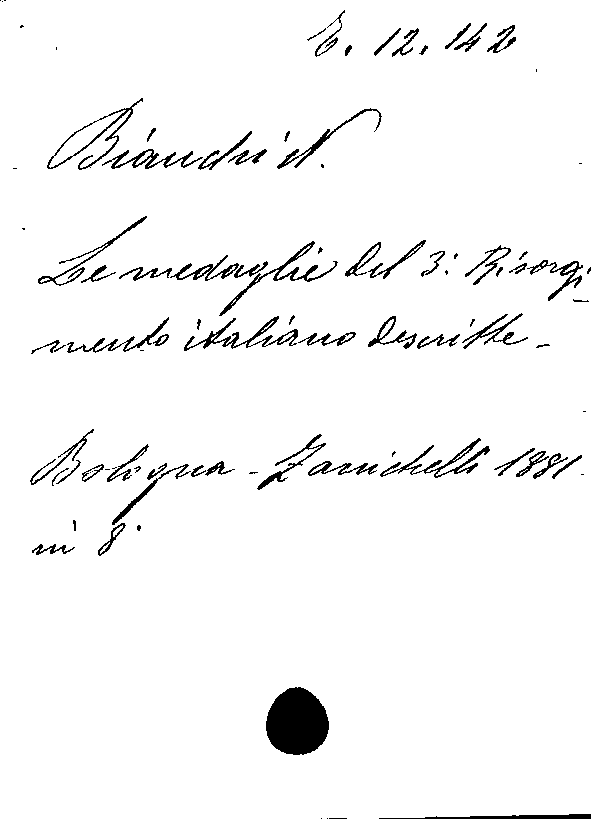 E. 12. 142
Bianchi N.
Le medaglie del 3: Risorgi-
mento italiano descritte -
Bologna - Zanichelli 1881.
in 8°